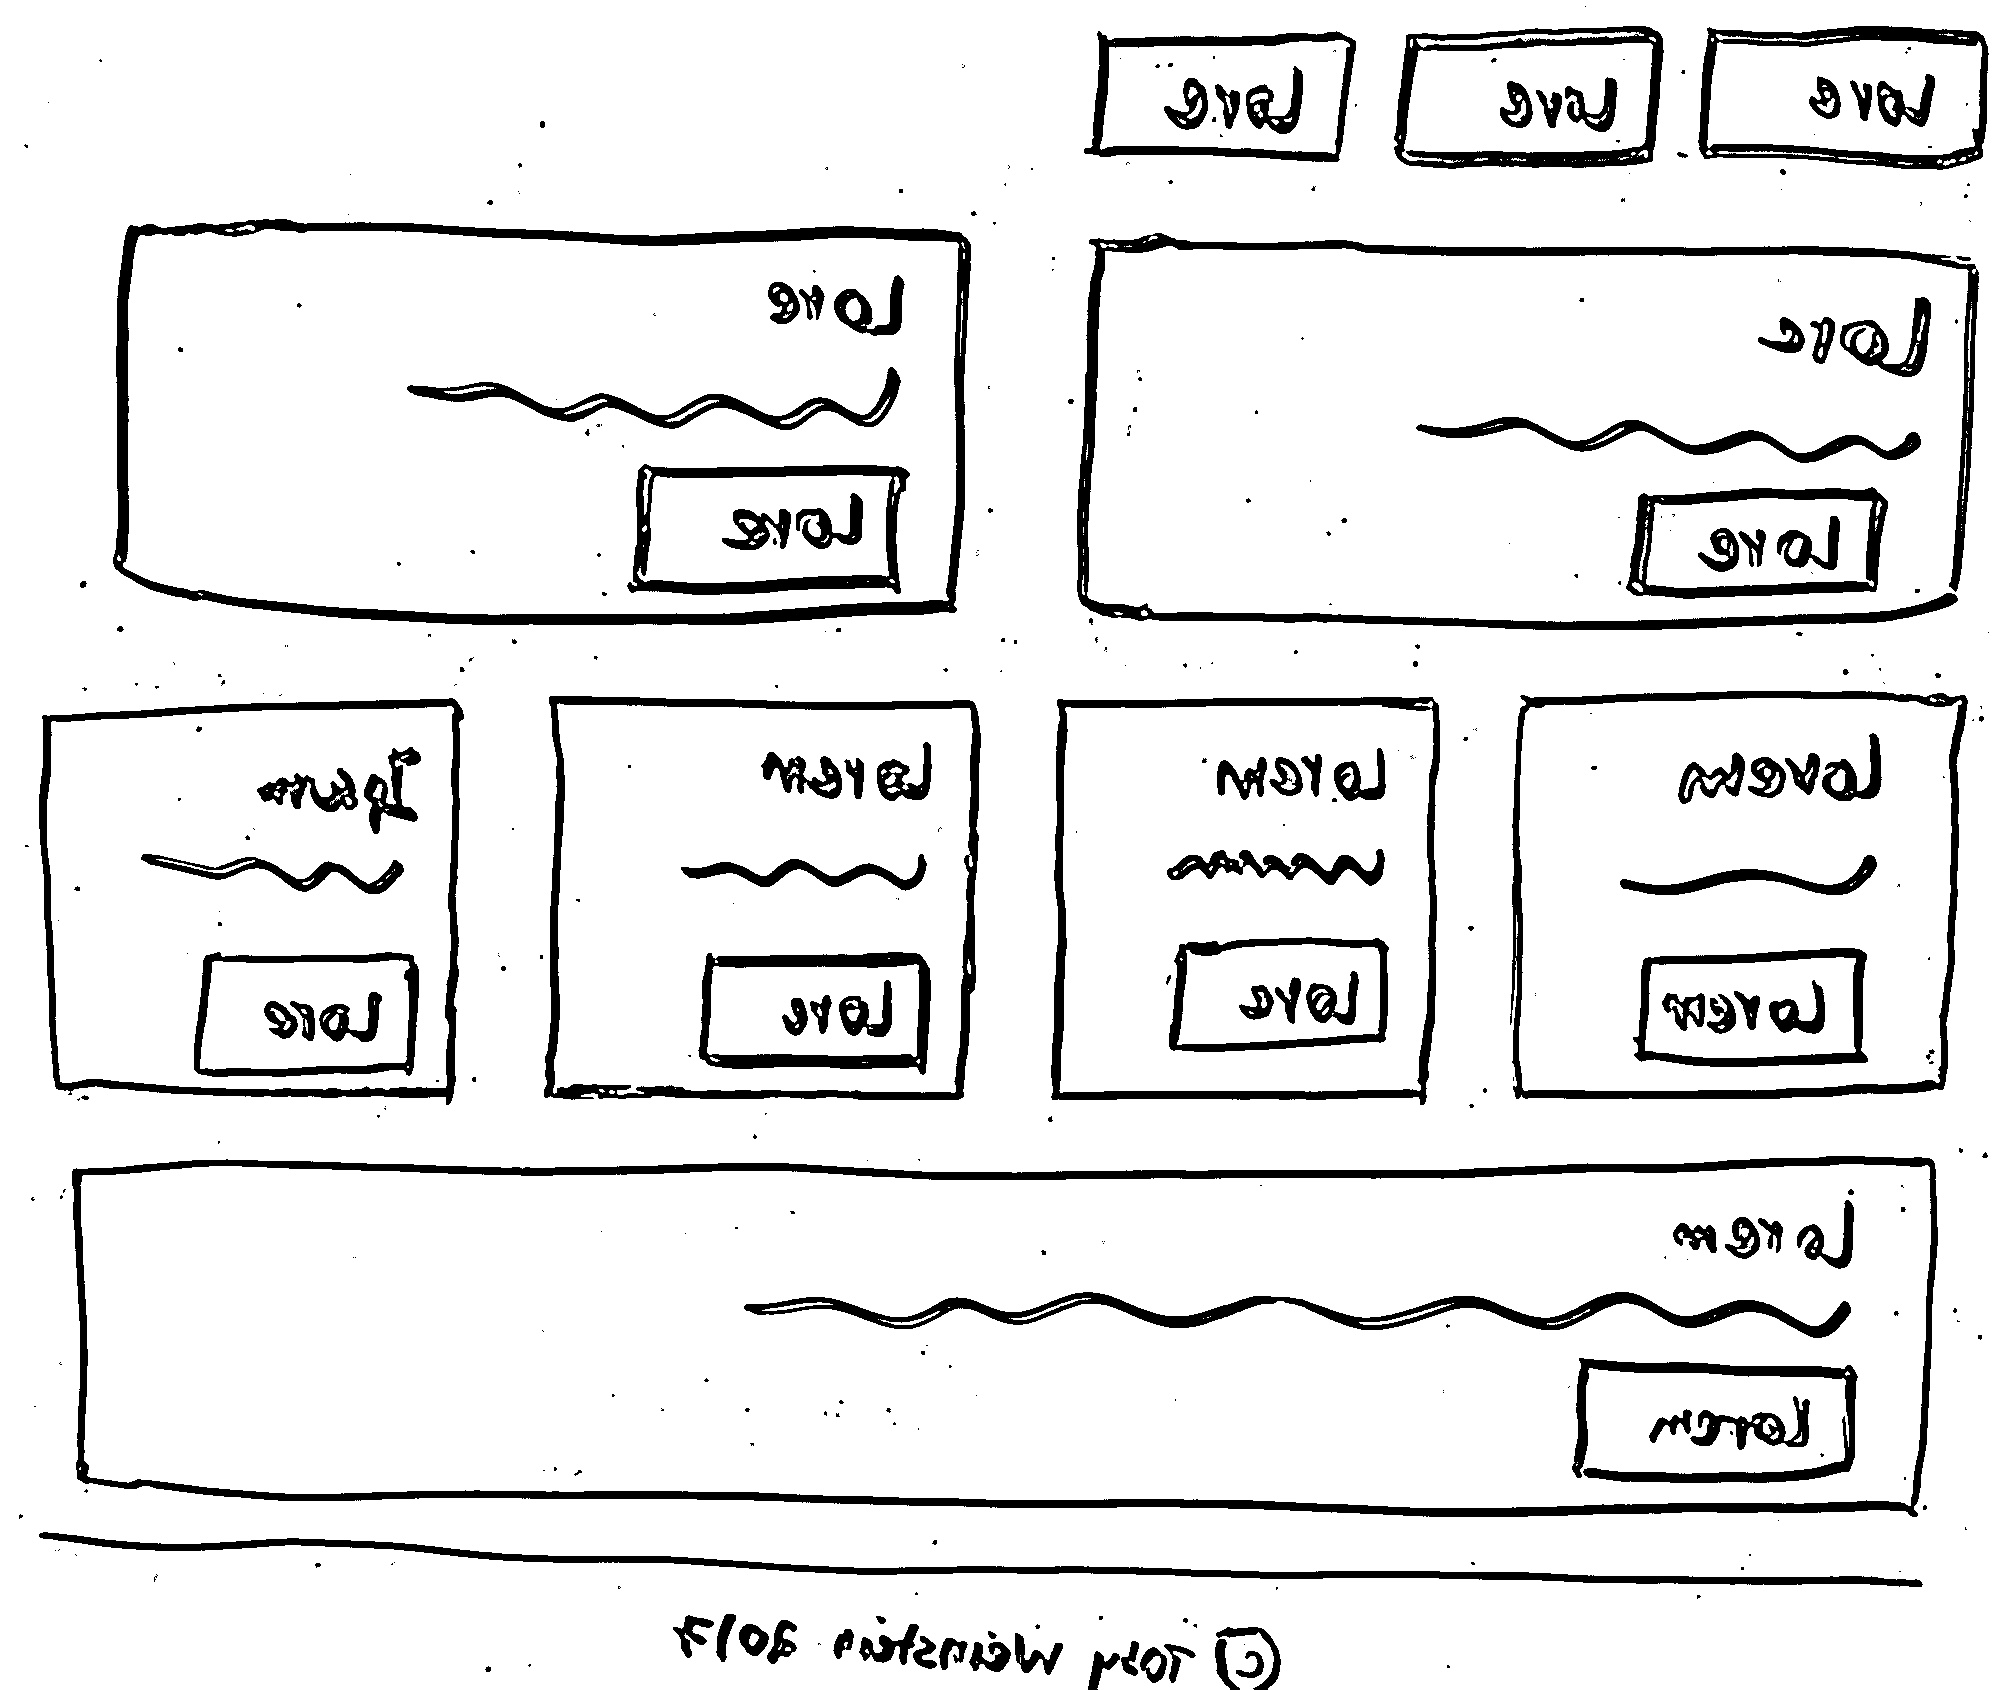 Lore
Lore
Lore
Lore
Lore
Lore
Lore
Lorem
Lorem
Lorem
Lore
Lorem
Lore
Ipsum
Lore
Lorem
Lorem
© Tony Weinstein 2017